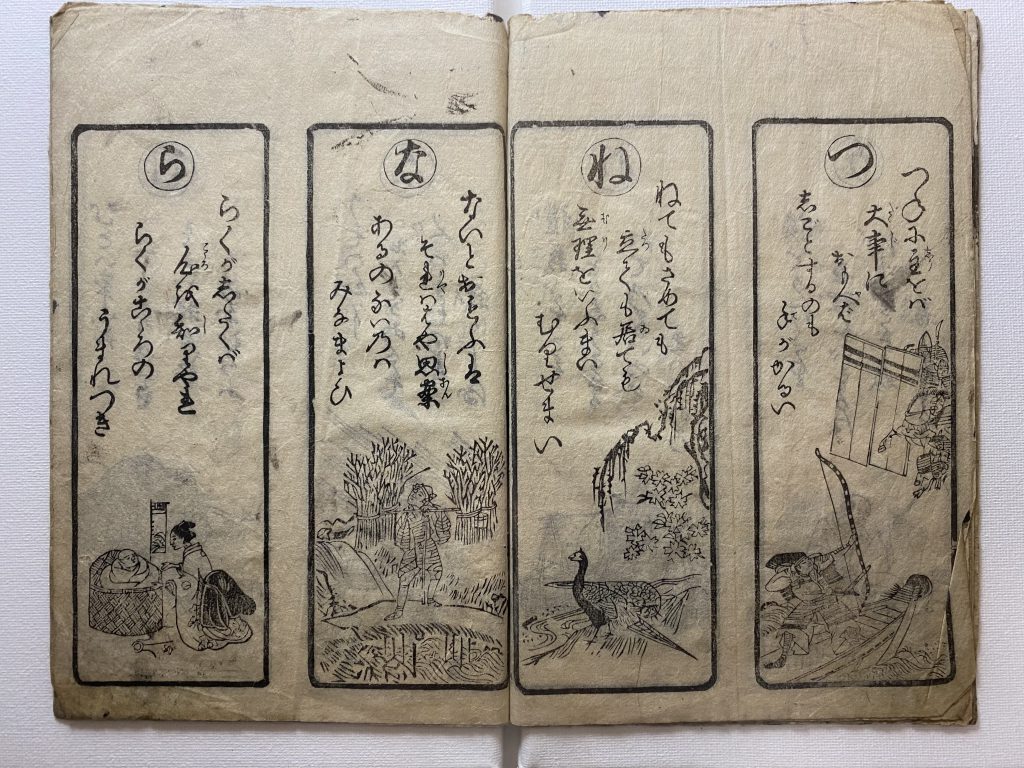 つ
つねに主をば
大事に
おもへば
志ごとするのも
手がかるい
ね
ねてもさめても
立ても居ても
無理をいふまい
むりせまい
な
ないとおもふは
思案
あるのないのハ
みなまよひ
ら
らくが志たくば
知りやれ
らくがこゝろの
うまれつき